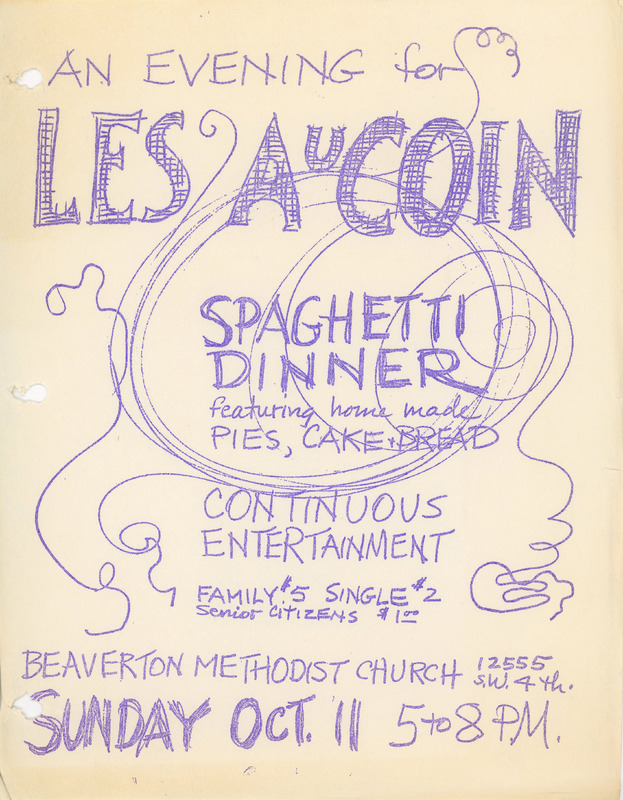 AN EVENING for
LES AuCOIN
SPAGHETTI
DINNER
featuring home made
PIES, CAKE + BREAD
CONTINUOUS
ENTERTAINMENT
FAMILY $5 SINGLE $2
Senior CITIZENS $1.00
BEAVERTON METHODIST CHURCH 12555
S.W. 4th.
SUNDAY OCT. 11 5 to 8 P.M.